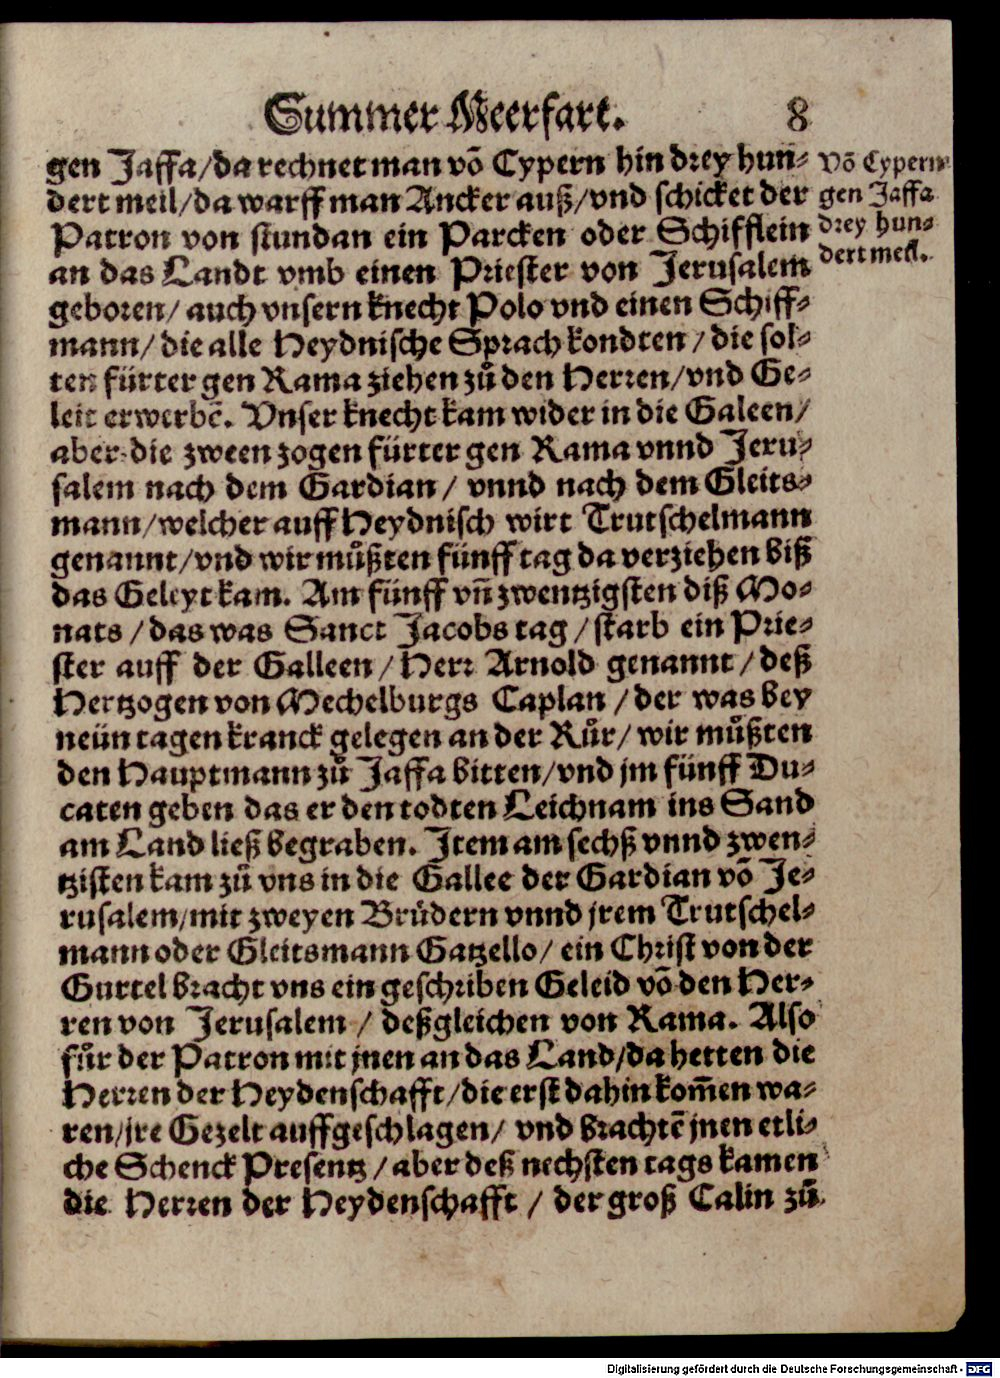 Summer Meerfart. 8
gen Jaffa/da rechnet man võ Cypern hin drey hun-
dert meil/da warff man Ancker auß/vnd schicket der
Patron von stundan ein Parcken oder Schifflein
an das Landt vmb einen Priester von Jerusalem
geboren/ auch vnsern knecht Polo vnd einen Schiff-
mann/ die alle Heydnische Sprach kondten/ die sol-
ten fürter gen Rama ziehen zů den Herren/vnd Ge-
leit erwerbẽ. Vnser knecht kam wider in die Galeen/
aber die zween zogen fürter gen Rama vnnd Jeru-
salem nach dem Gardian/ vnnd nach dem Gleits-
mann/welcher auff Heydnisch wirt Trutschelmann
genannt/vnd wir můßten fünff tag da verziehen biß
das Geleyt kam. Am fünff vñ zwentzigsten diß Mo-
nats/ das was Sanct Jacobs tag/ starb ein Prie-
ster auff der Galleen/ Herr Arnold genannt/ deß
Hertzogen von Mechelburgs Caplan/ der was bey
neün tagen kranck gelegen an der Růr/ wir můßten
den Hauptmann zů Jaffa bitten/vnd jm fünff Du-
caten geben das er den todten Leichnam ins Sand
am Land ließ begraben. Item am sechß vnnd zwen-
tzisten kam zů vns in die Gallee der Gardian võ Je-
rusalem/mit zweyen Brůdern vnnd jrem Trutschel-
mann oder Gleitsmann Gatzello/ ein Christ von der
Gurtel bracht vns ein geschriben Geleid võ den Her-
ren von Jerusalem/ deßgleichen von Rama. Also
fůr der Patron mit jnen an das Land/da hetten die
Herren der Heydenschafft/die erst dahin kom̃en wa-
ren/jre Gezelt auffgeschlagen/ vnd brachtẽ jnen etli-
che Schenck Presentz/ aber deß nechsten tags kamen
die Herren der Heydenschafft/ der groß Calin zů
võ Cypern
gen Jaffa
drey hun-
dert meil.
Digitalisierung gefördert durch die Deutsche Forschungsgemeinschaft - DFG